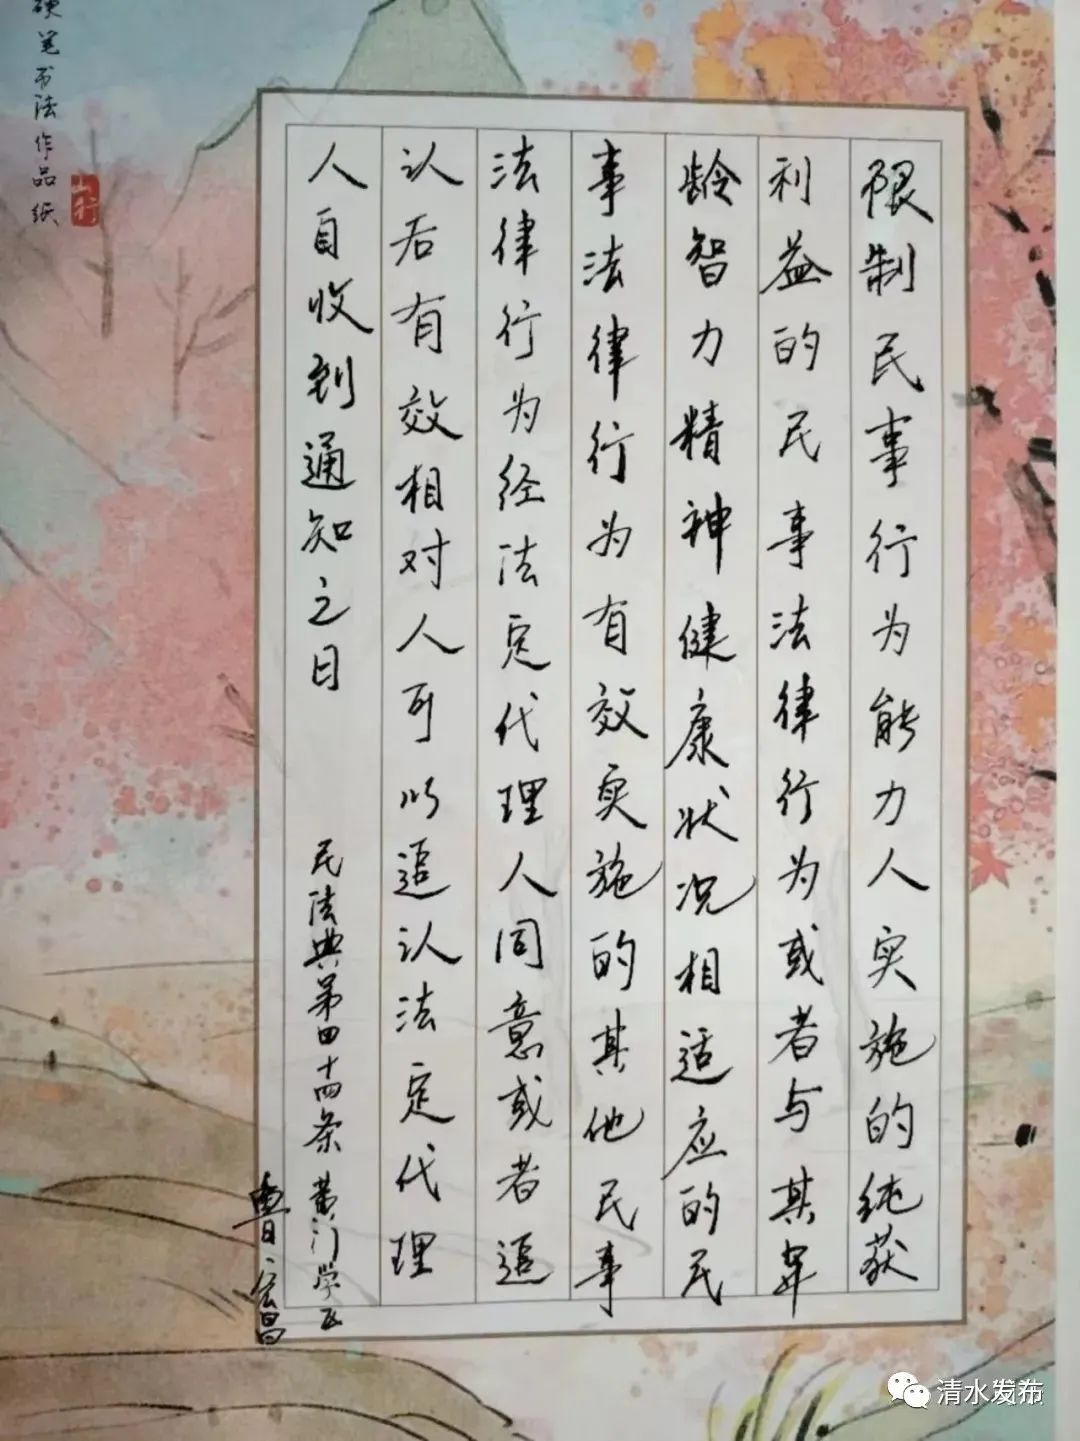 限制民事行为能力人实施的纯获
利益的民事法律行为或者与其年
龄智力精神健康状况相适应的民
事法律行为有效实施的其他民事
法律行为经法定代理人同意或者追
认后有效相对人可以追认法定代理
人自收到通知之日
民法典第四十四条 黄门学区
曹宏昌
硬笔书法作品纸
山行
清水发布